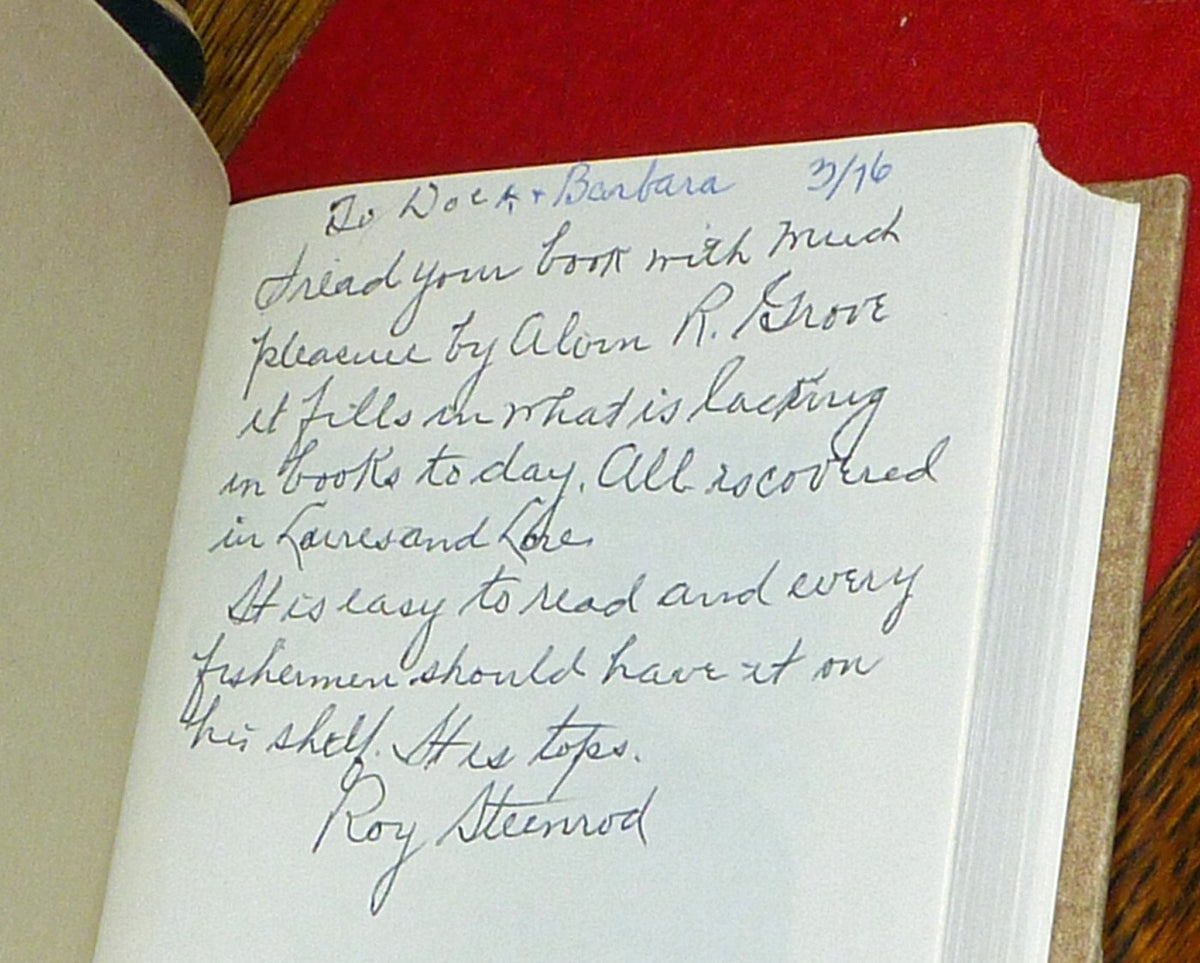 To Doc & + Barbara 3/76
I read your book with much
pleasure by Alvin R. Grove
it fills in what is lacking
in books to day. All is covered
in Lures and Lore.
It is easy to read and every
fishermen should have it on
his shelf. It is tops.
Roy Steenrod